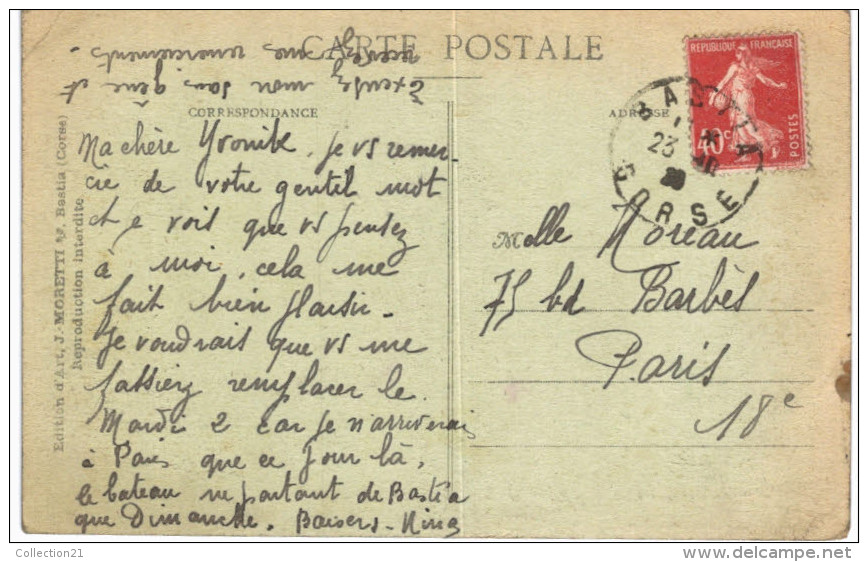 CARTE POSTALE
CORRESPONDANCE
ADRESSE
Ma chère Yvonne, je vs remer-
cie de votre gentil mot
et je vois que vs pensez
à moi, cela me
fait bien plaisir -
Je voudrais que vs me
fassiez remplacer le
Mardi 2 car je n'arriverais
à Paris que ce jour là,
le bateau ne partant de Bastia
que Dimanche. Baisers - Nina
Excusez mon sans gêne et
recevez mes remerciements -
Melle Moreau
75 bd Barbès
Paris
18e
REPUBLIQUE FRANÇAISE
POSTES
40c
BASTIA
23
CORSE
Edition d'Art, J. MORETTI Bastia (Corse)
Reproduction interdite
Collection21
http://www.delcampe.net